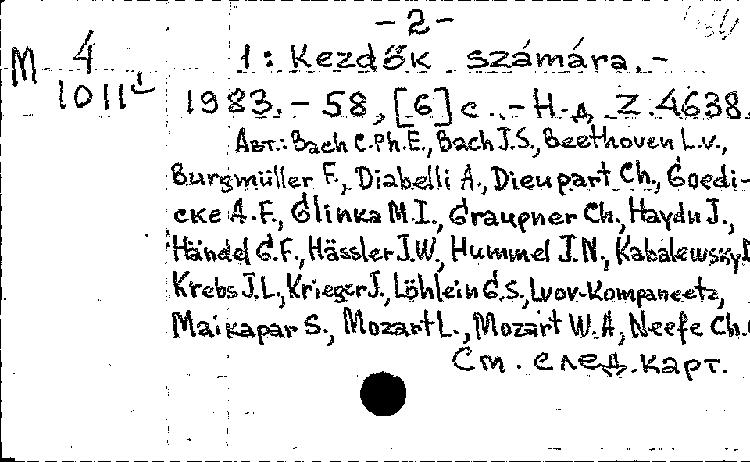 - 2 -
М 4
1011
1: Kezdők számára. -
1983. - 58, [6] с. - Н.д. Z. 4638.
Авт.: Bach C.Ph.E., Bach J.S., Beethoven L.v.,
Burgmüller F., Diabelli A., Dieupart Ch., Goedi-
cке A.F., Glinka M.I., Graupner Ch., Haydn J.,
Händel G.F., Hässler J.W., Hummel J.N., Kabalewsky
Krebs J.L., Krieger J., Löhlein G.S., Lvov-Kompaneetz,
Maikapar S., Mozart L., Mozart W.A., Neefe Ch.
См. след. карт.